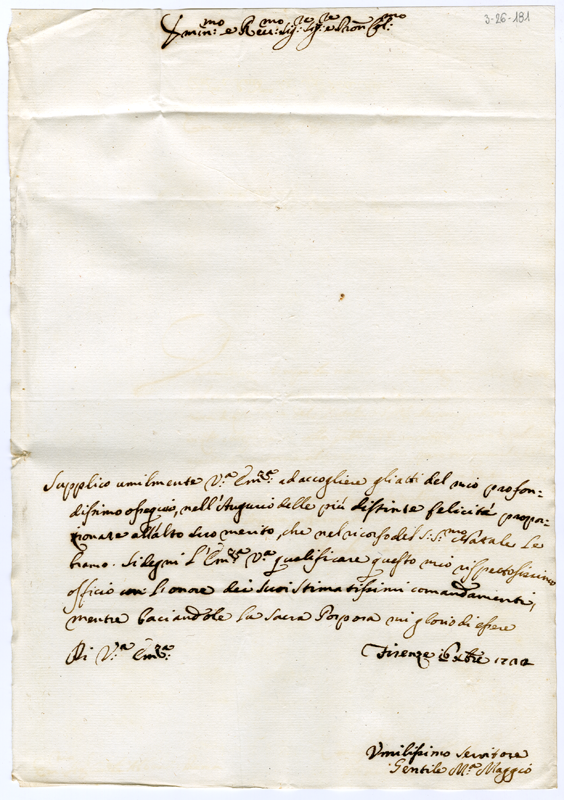 3-26-191
Emin:mo e Rev:mo Sig:re Sig:re e Pron Col:mo
Supplico umilmente V.a Em:za ad accogliere gli atti del mio profon=
dissimo ossequio, nell'Augurio delle più distinte felicità propor=
zionate all'alto suo merito, che nel ricorso del S:S:mo Natale Le
bramo. Si degni l'Em:za V.a qualificare questo mio rispettosissimo
officio con l'onore dei suoi stimatissimi comandamenti,
mentre baciandole la Sacra Porpora mi glorio di essere
Di V.a Em:za
Firenze Xbre
Umilissimo Servitore
Gentile M.a Maggio